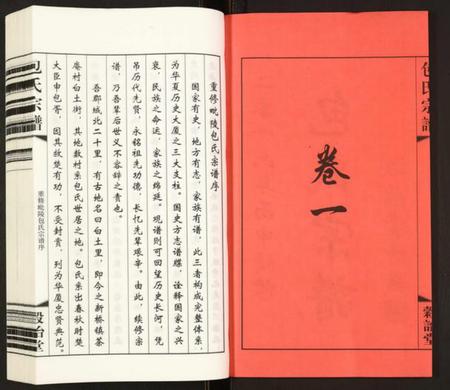 卷一
包氏宗譜
穀詒堂
重修毗陵包氏宗谱序
国家有史，地方有志，家族有谱，此三者构成完整体系，
为华夏历史大厦之三大支柱。国史方志谱牒，诠释国家之兴
衰，民族之命运，家族之绵延。观谱则可回望历史长河，凭
吊历代先贤，永铭祖先功德，长忆先辈艰辛。由此，续修宗
谱，乃吾辈后世义不容辞之责也。
吾郡城北二十里，有古地名曰白土里，即今之新桥镇茶
庵村白土街，其地数村系包氏世居之地。包氏系出春秋时楚
大臣申包胥，因其救楚有功，不受封赏，列为华厦忠贤典范。
包氏宗譜
重修毗陵包氏宗谱序
穀诒堂